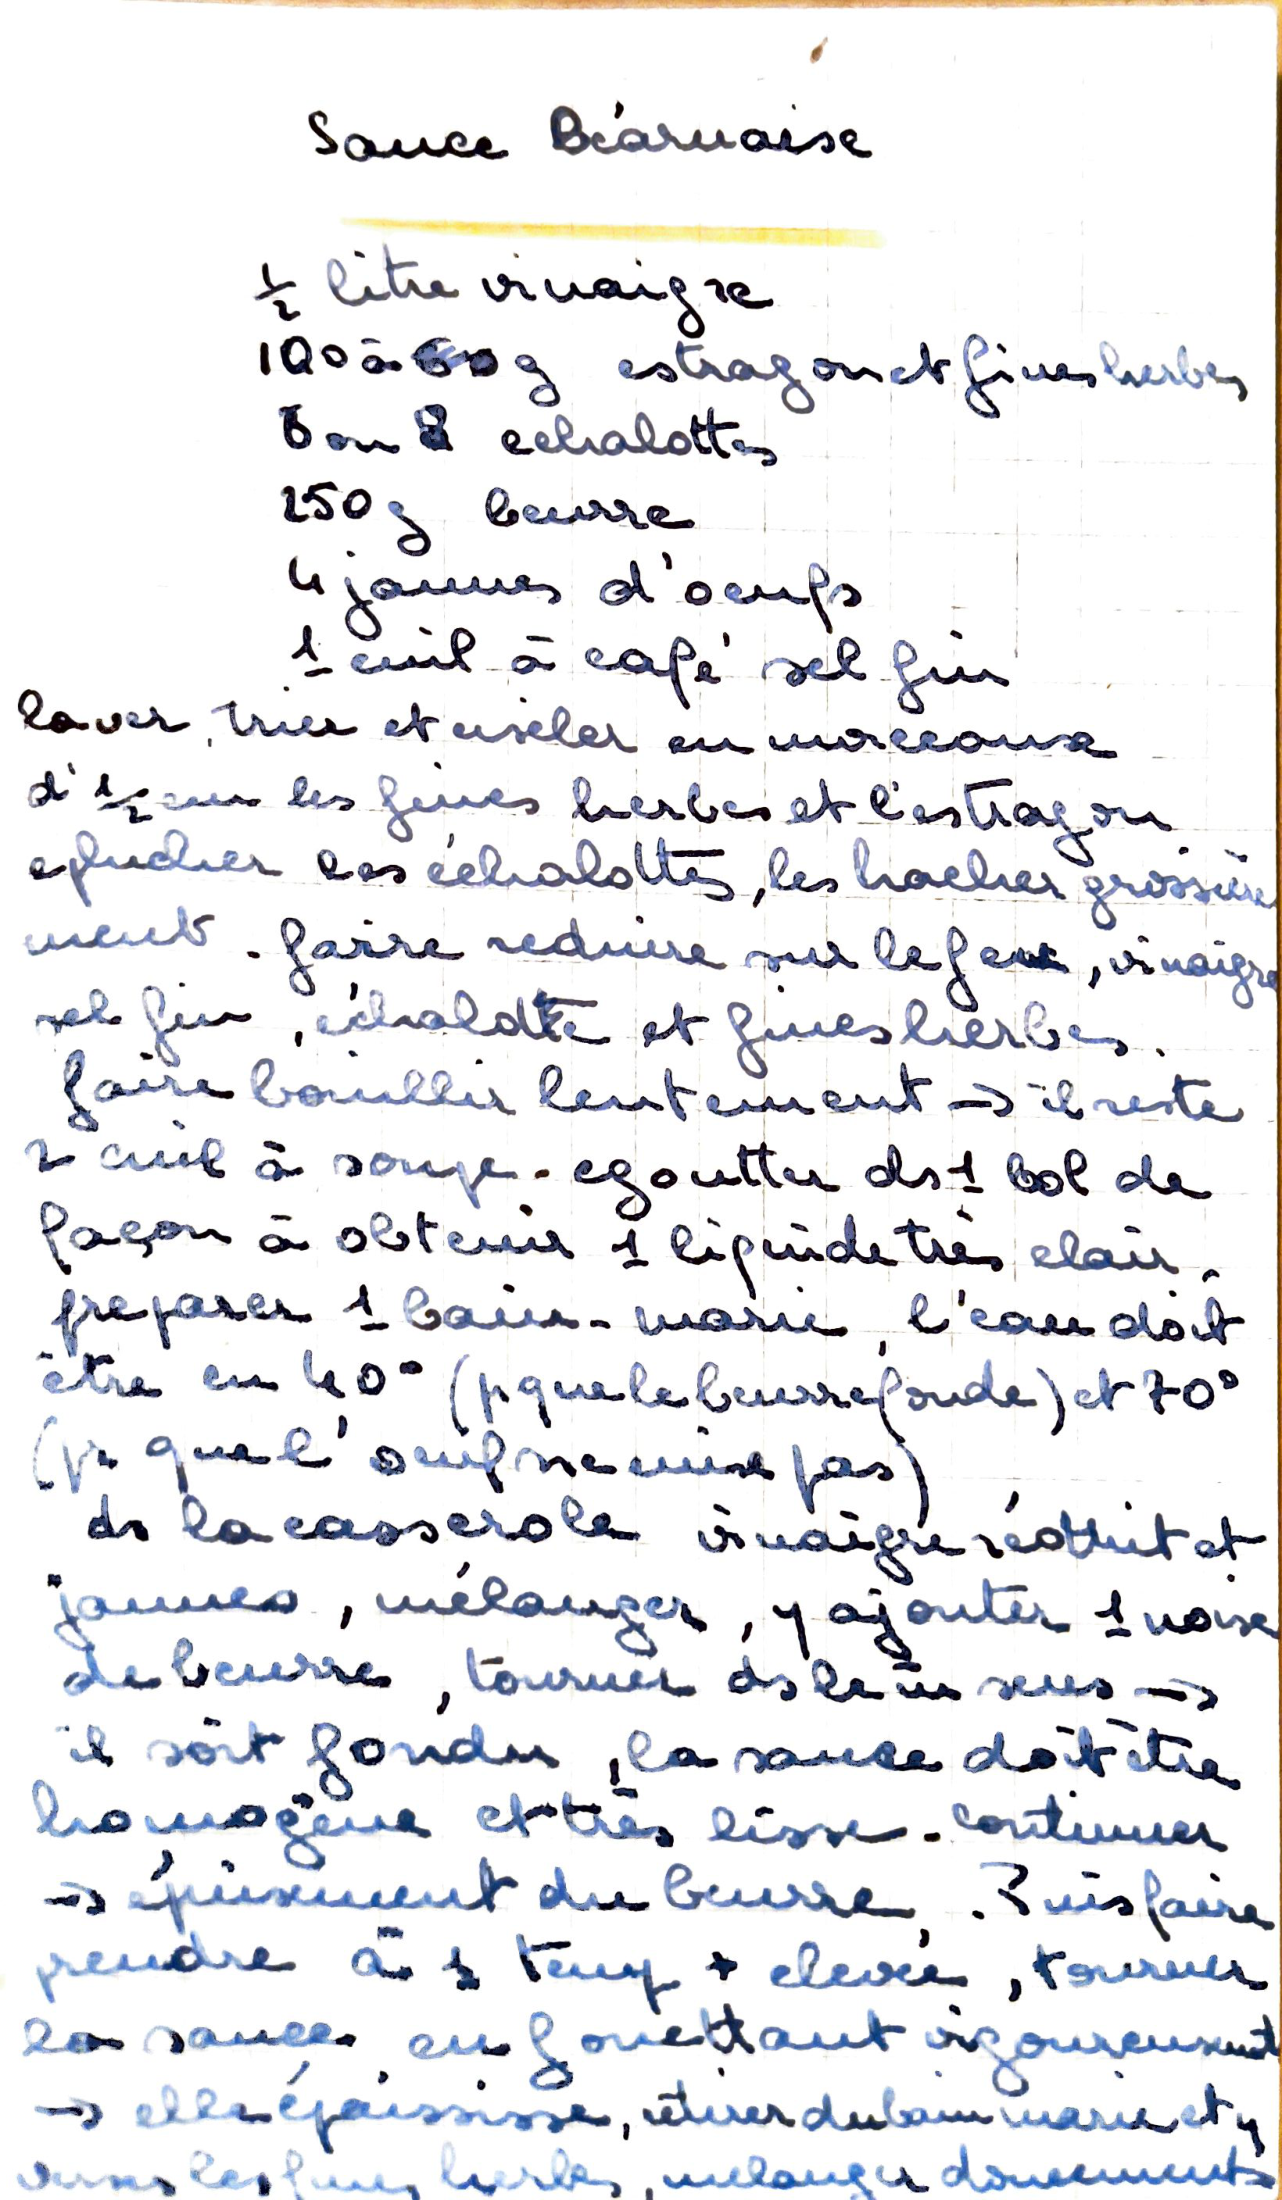 Sauce Béarnaise
1/2 litre vinaigre
100 à 60 g estragon et fines herbes
6 ou 8 echalottes
250 g beurre
4 jaunes d'oeufs
1 cuil à café sel fin
laver, trier et ciseler en morceaux
d'1/2 cm les fines herbes et l'estragon
eplucher les échalottes, les hacher grossière
ment. faire reduire sur le feu, vinaigre
sel fin, échalotte et fines herbes.
faire bouillir lentement → il reste
2 cuil à soupe. egoutter ds 1 bol de
façon à obtenir 1 liquide très clair.
preparer 1 bain-marie, l'eau doit
être en 40° (p que le beurre fonde) et 70°
(pr que l'oeuf ne cuise pas)
ds la casserole vinaigre réduit et
jaunes, mélanger, y ajouter 1 noise
de beurre, tourner ds le m̄ sens →
il soit fondu, la sauce doit être
homogène et très lisse. continuer
→ épuisement du beurre. Puis faire
prendre à 1 temp + elevée, tourner
la sauce en fouettant vigoureusement
→ elle épaississe, retirer du bain marie et y
verser les fines herbes, melanger doucement